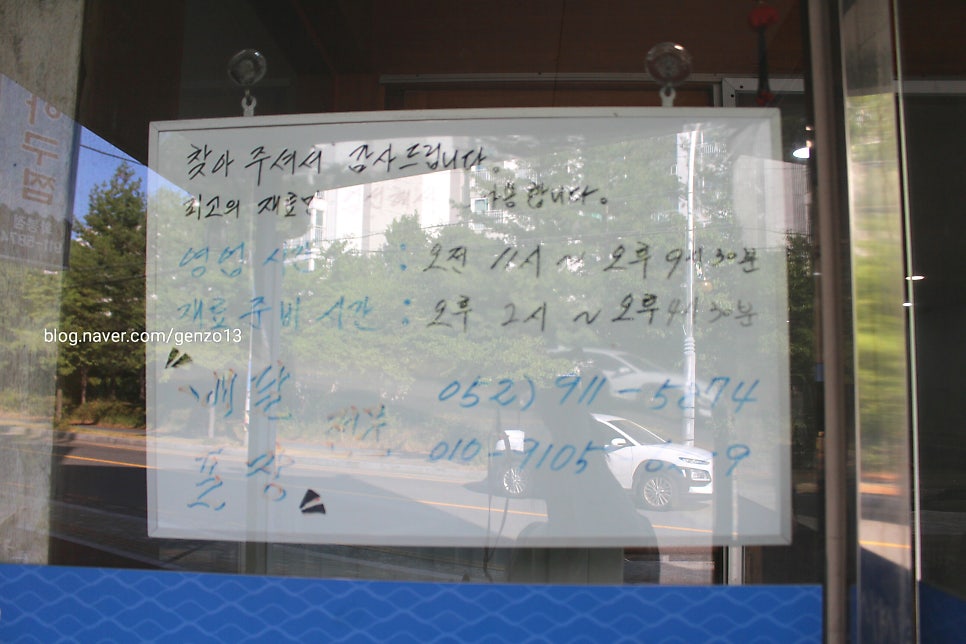 찾아 주셔서 감사드립니다.
최고의 재료만 사용합니다.
영업 시간 : 오전 11시 ~ 오후 9시 30분
재료준비 시간 : 오후 2시 ~ 오후 4시 30분
blog.naver.com/genzo13
배달
포장
052) 911-5274
010-9105